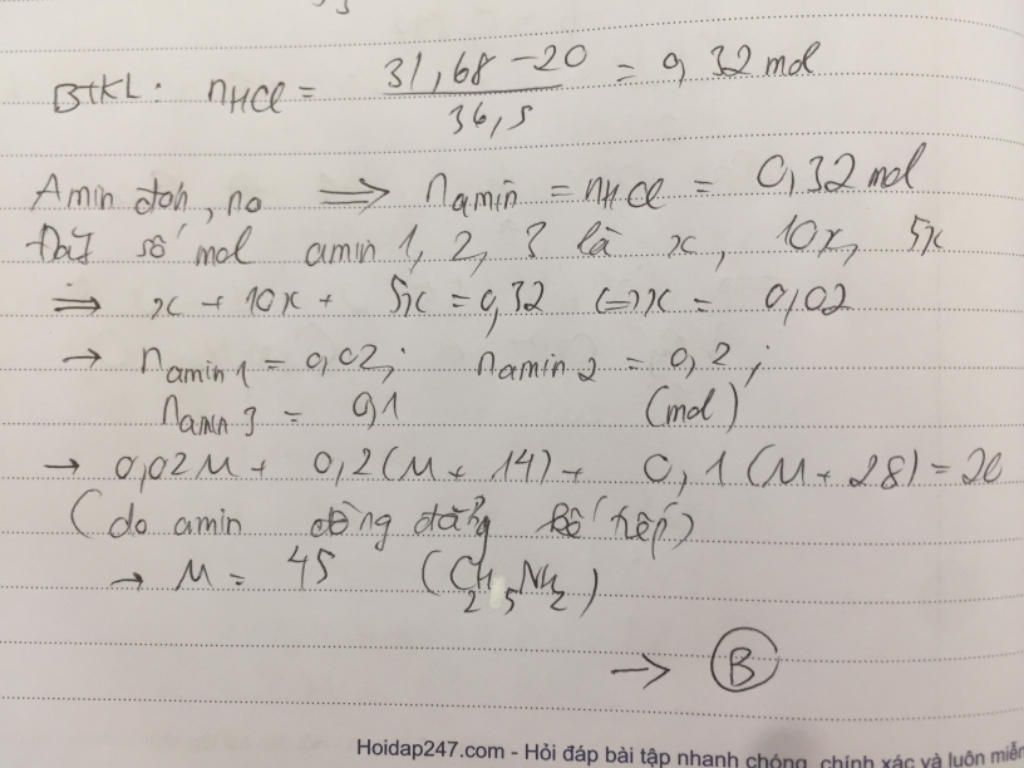 BTKL: nHCl = 31,68 - 20 / 36,5 = 0,32 mol
Amin đơn, no ⟹ namin = nHCl = 0,32 mol
Đặt số mol amin 1, 2, 3 là x, 10x, 5x
⟹ x + 10x + 5x = 0,32 <=> x = 0,02
→ namin 1 = 0,02; namin 2 = 0,2;
namin 3 = 0,1 (mol)
→ 0,02M + 0,2(M + 14) + 0,1(M + 28) = 20
(do amin đồng đẳng kế tiếp)
→ M = 45 (C2H5NH2)
→ B
Hoidap247.com - Hỏi đáp bài tập nhanh chóng, chính xác và luôn miễn